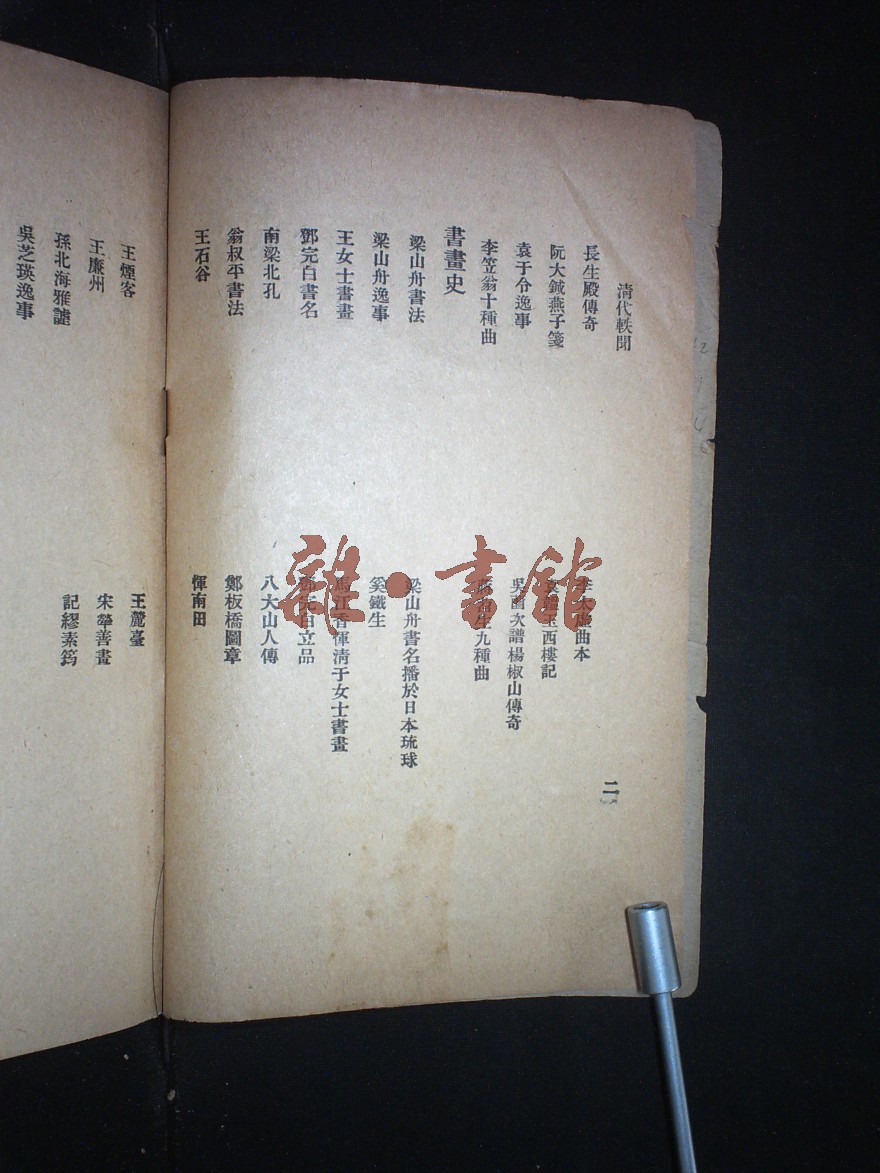 清代軼聞
長生殿傳奇
李太虛曲本
阮大鋮燕子箋
玉西樓記
袁于令逸事
吳園次譜楊椒山傳奇
李笠翁十種曲
生九種曲
書畫史
梁山舟書法
梁山舟書名播於日本琉球
梁山舟逸事
奚鐵生
王女士書畫
馬江香惲清于女士書畫
鄧完白書名
鄧完白立品
南梁北孔
八大山人傳
翁叔平書法
鄭板橋圖章
王石谷
惲南田
二
王煙客
王麓臺
王廉州
宋犖善畫
孫北海雅謔
記繆素筠
吳芝瑛逸事
雜·書館